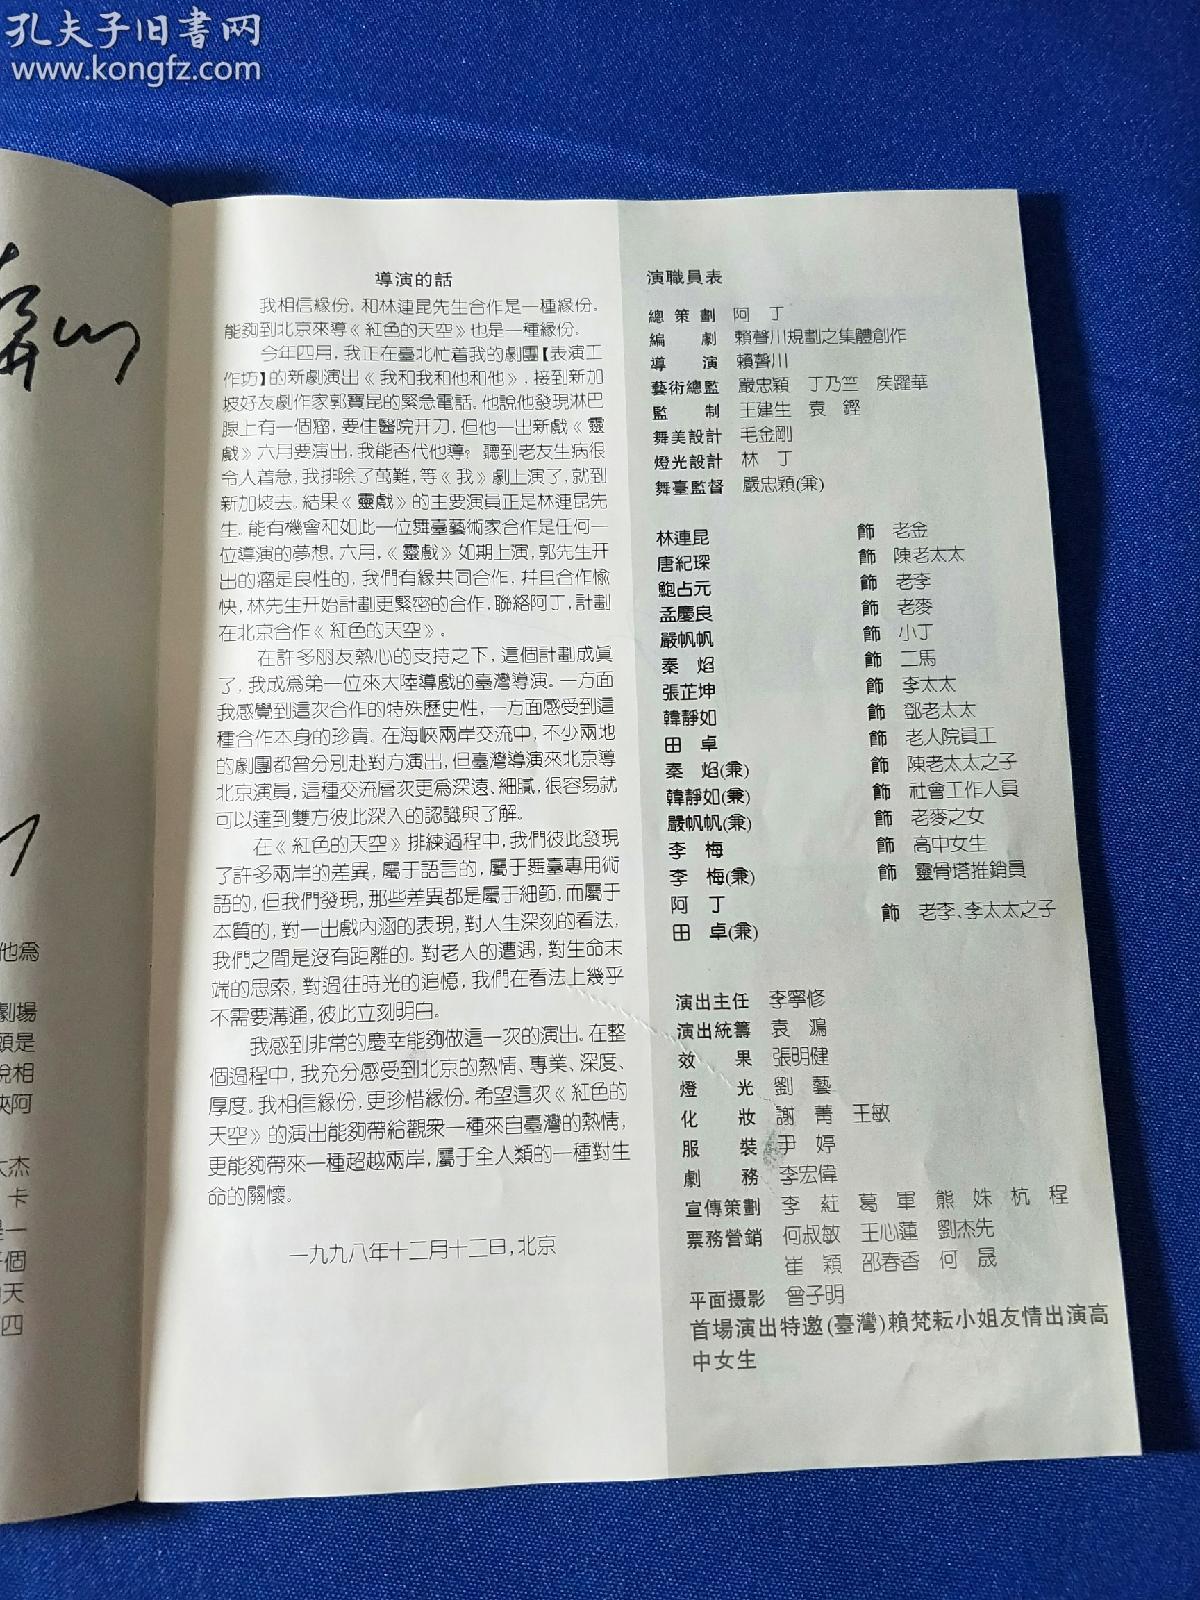 孔夫子旧書网
www.kongfz.com
導演的話
我相信緣份。和林連昆先生合作是一種緣份。
能夠到北京來導《紅色的天空》也是一種緣份。
今年四月，我正在臺北忙着我的劇團【表演工
作坊】的新劇演出《我和我和他和他》，接到新加
坡好友劇作家郭寶昆的緊急電話。他說他發現淋巴
腺上有一個瘤，要住醫院开刀，但他一出新戲《靈
戲》六月要演出，我能否代他導？聽到老友生病很
令人着急，我排除了萬難，等《我》劇上演了，就到
新加坡去。結果《靈戲》的主要演員正是林連昆先
生。能有機會和如此一位舞臺藝術家合作是任何一
位導演的夢想。六月，《靈戲》如期上演，郭先生开
出的瘤是良性的，我們有緣共同合作，幷且合作愉
快，林先生开始計劃更緊密的合作，聯絡阿丁，計劃
在北京合作《紅色的天空》。
在許多朋友熱心的支持之下，這個計劃成眞
了，我成爲第一位來大陸導戲的臺灣導演。一方面
我感覺到這次合作的特殊歷史性，一方面感受到這
種合作本身的珍貴。在海峽兩岸交流中，不少兩地
的劇團都曾分別赴對方演出，但臺灣導演來北京導
北京演員，這種交流層次更爲深遠、細膩，很容易就
可以達到雙方彼此深入的認識與了解。
在《紅色的天空》排練過程中，我們彼此發現
了許多兩岸的差異，屬于語言的，屬于舞臺專用術
語的，但我們發現，那些差異都是屬于細節，而屬于
本質的，對一出戲內涵的表現，對人生深刻的看法，
我們之間是沒有距離的。對老人的遭遇，對生命末
端的思索，對過往時光的追憶，我們在看法上幾乎
不需要溝通，彼此立刻明白。
我感到非常的慶幸能夠做這一次的演出。在整
個過程中，我充分感受到北京的熱情、專業、深度、
厚度。我相信緣份，更珍惜緣份。希望這次《紅色的
天空》的演出能夠帶給觀衆一種來自臺灣的熱情，
更能夠帶來一種超越兩岸，屬于全人類的一種對生
命的關懷。
一九九八年十二月十二日，北京
演職員表
總策劃 阿丁
編劇 賴聲川規劃之集體創作
導演 賴聲川
藝術總監 嚴忠穎 丁乃竺 侯躍華
監制 王建生 袁鏗
舞美設計 毛金剛
燈光設計 林丁
舞臺監督 嚴忠穎(兼)
林連昆 飾 老金
唐紀琛 飾 陳老太太
鮑占元 飾 老李
孟慶良 飾 老麥
嚴帆帆 飾 小丁
秦焰 飾 二馬
張芷坤 飾 李太太
韓靜如 飾 鄧老太太
田卓 飾 老人院員工
秦焰(兼) 飾 陳老太太之子
韓靜如(兼) 飾 社會工作人員
嚴帆帆(兼) 飾 老麥之女
李梅 飾 高中女生
李梅(兼) 飾 靈骨塔推銷員
阿丁
飾 老李、李太太之子
田卓(兼)
演出主任 李寧修
演出統籌 袁鴻
效果 張明健
燈光 劉藝
化妝 謝菁 王敏
服裝 尹婷
劇務 李宏偉
宣傳策劃 李紅 葛軍 熊姝 杭程
票務營銷 何叔敏 王心蓮 劉杰先
崔穎 邵春香 何晟
平面摄影 曾子明
首場演出特邀(臺灣)賴梵耘小姐友情出演高
中女生
他爲
劇場
頭是
說相
俠阿
大杰
卡
是一
個
天
四